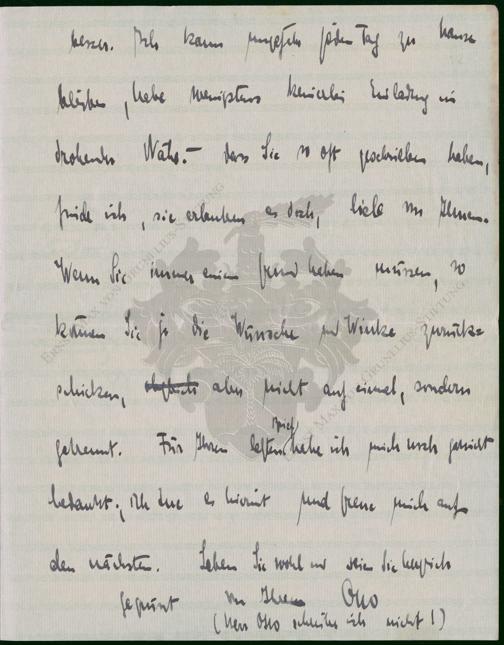 besser. Ich kann ungefähr jeden Tag zu Hause
bleiben, habe wenigstens keinerlei Einladung in
drohender Nähe. – dass Sie so oft geschrieben haben,
finde ich, sie erlauben es doch, lieb von Ihnen.
Wenn Sie immer einen Grund haben müssen, so
können Sie ja die Wünsche und Winke zurück=
schicken, aber nicht auf einmal, sondern
getrennt. Für Ihren letzten Brief habe ich mich noch nicht
bedankt; ich tue es hiermit und freue mich auf
den nächsten. Leben Sie wohl und seien Sie herzlich
gegrüsst von Ihrem Otto
(Herr Otto schreibe ich nicht!)
ERNST MAX VON GRUNELIUS-STIFTUNG
ERNST MAX VON GRUNELIUS-STIFTUNG